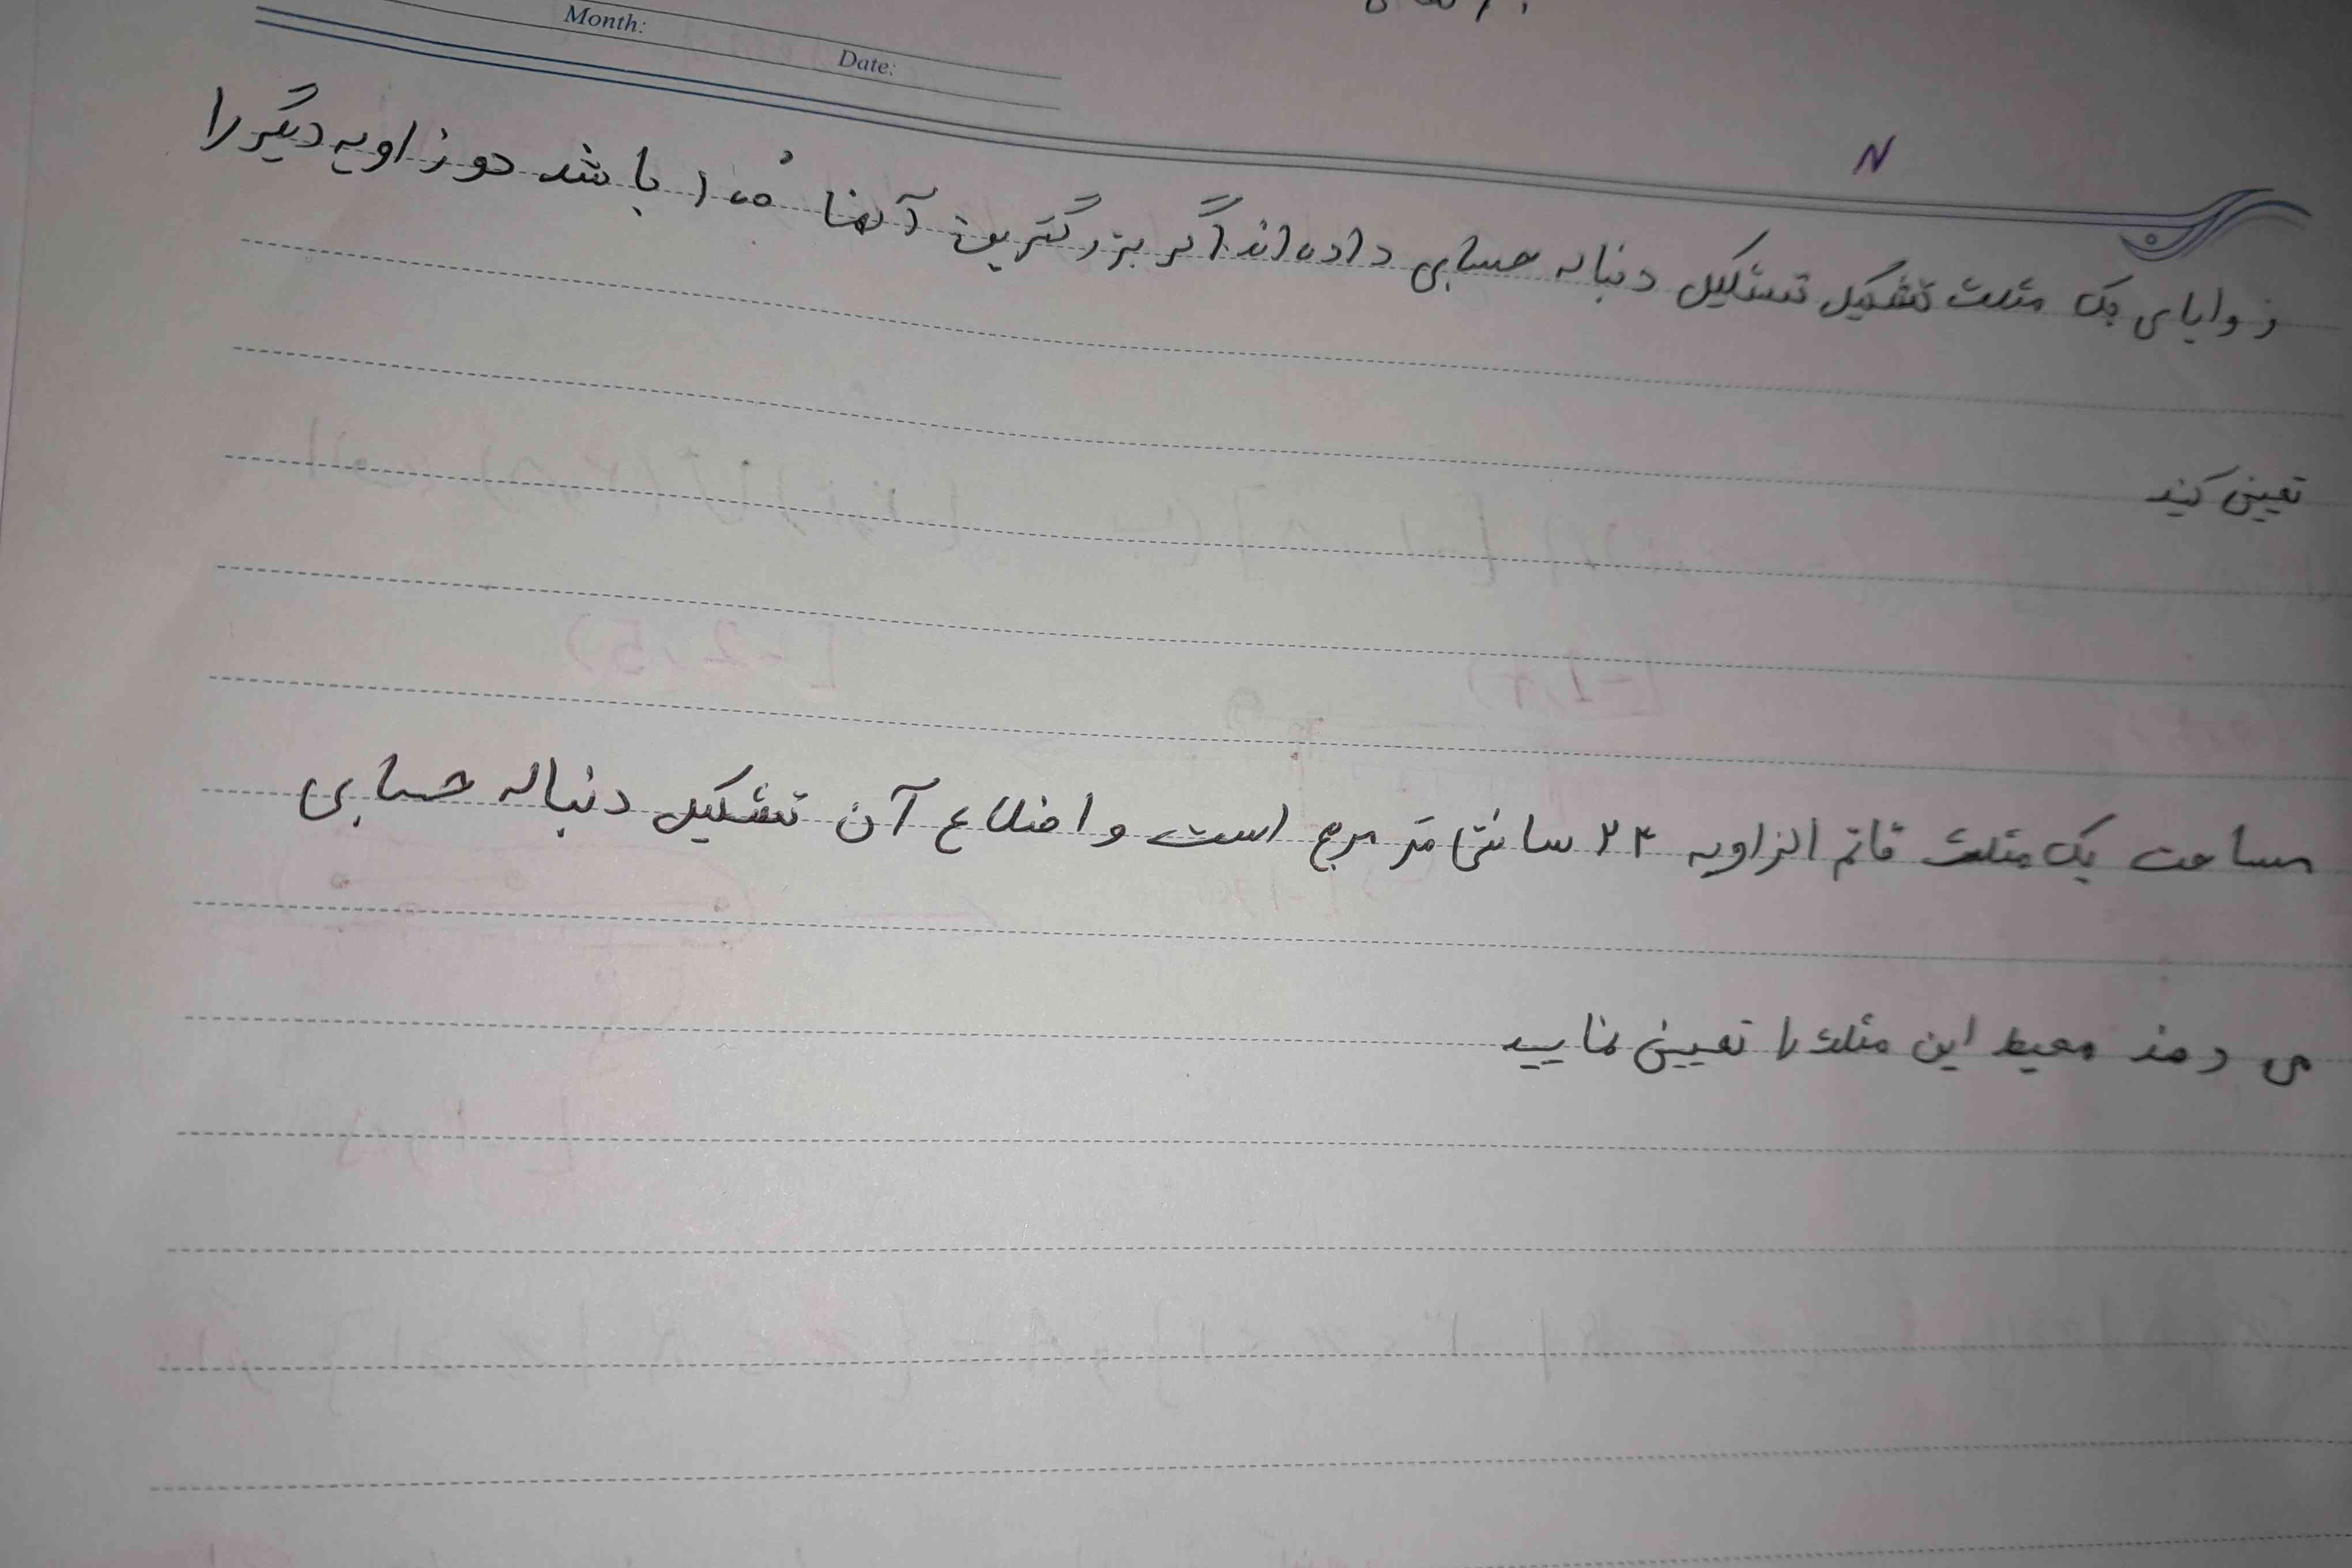 Month:
Date:
زوایای یک مثلث تشکیل تشکیل دنباله حسابی داده اند اگر بزرگترین آنها ۱۰۵° باشد دو زاویه دیگر را
تعیین کنید
مساحت یک مثلث قائم الزاویه ۲۴ سانتی متر مربع است و اضلاع آن تشکیل دنباله حسابی
می دهند محیط این مثلث را تعیین نمایید